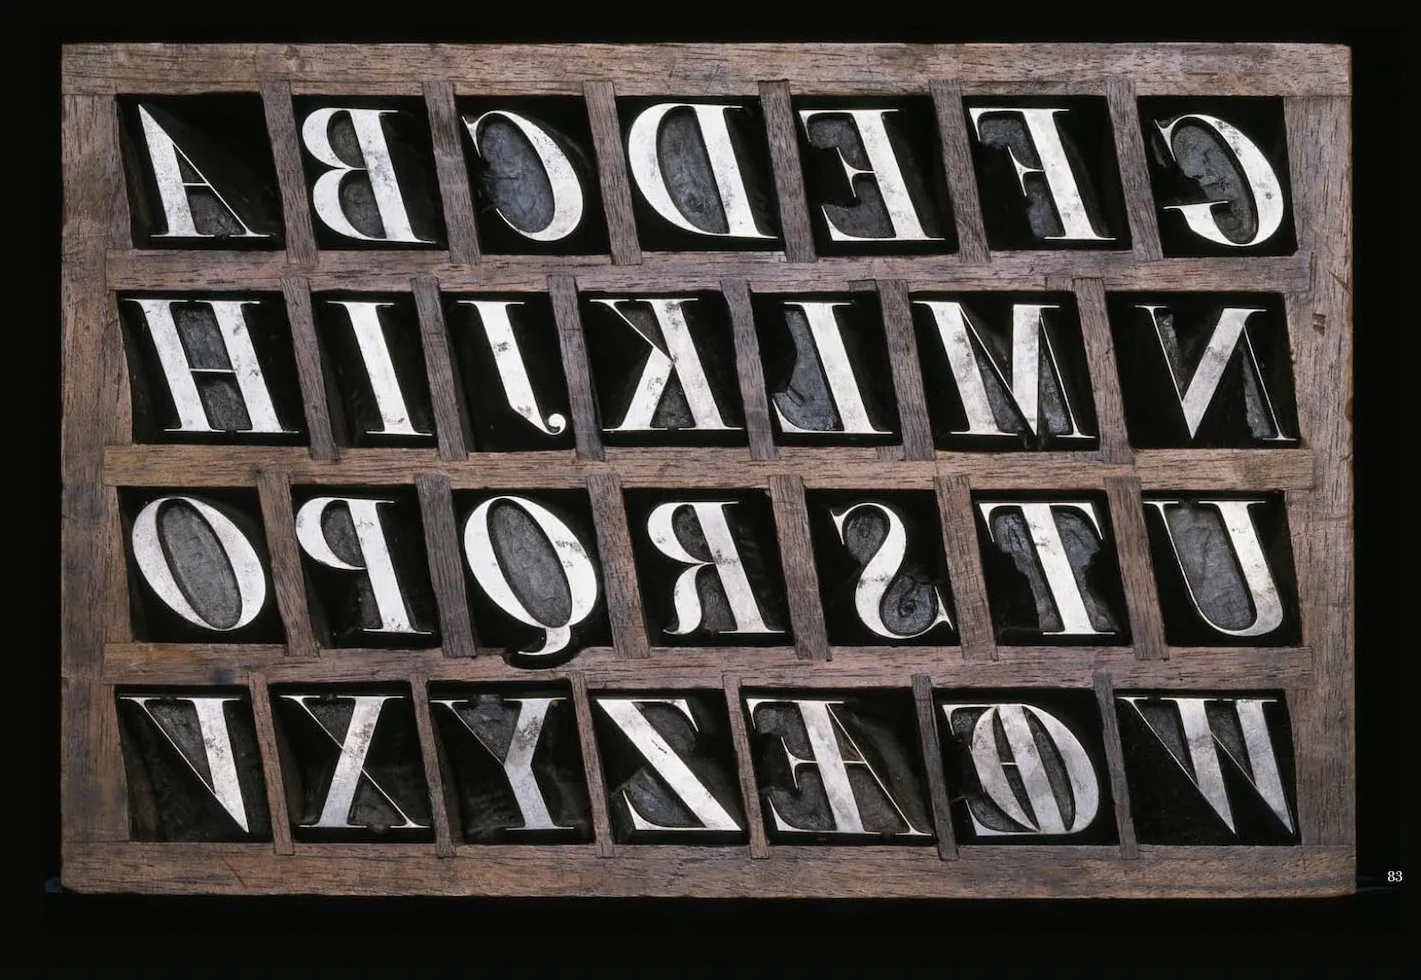 A B C D E F G
H I J K L M N
O P Q R S T U
V X Y Z Æ Œ W
83